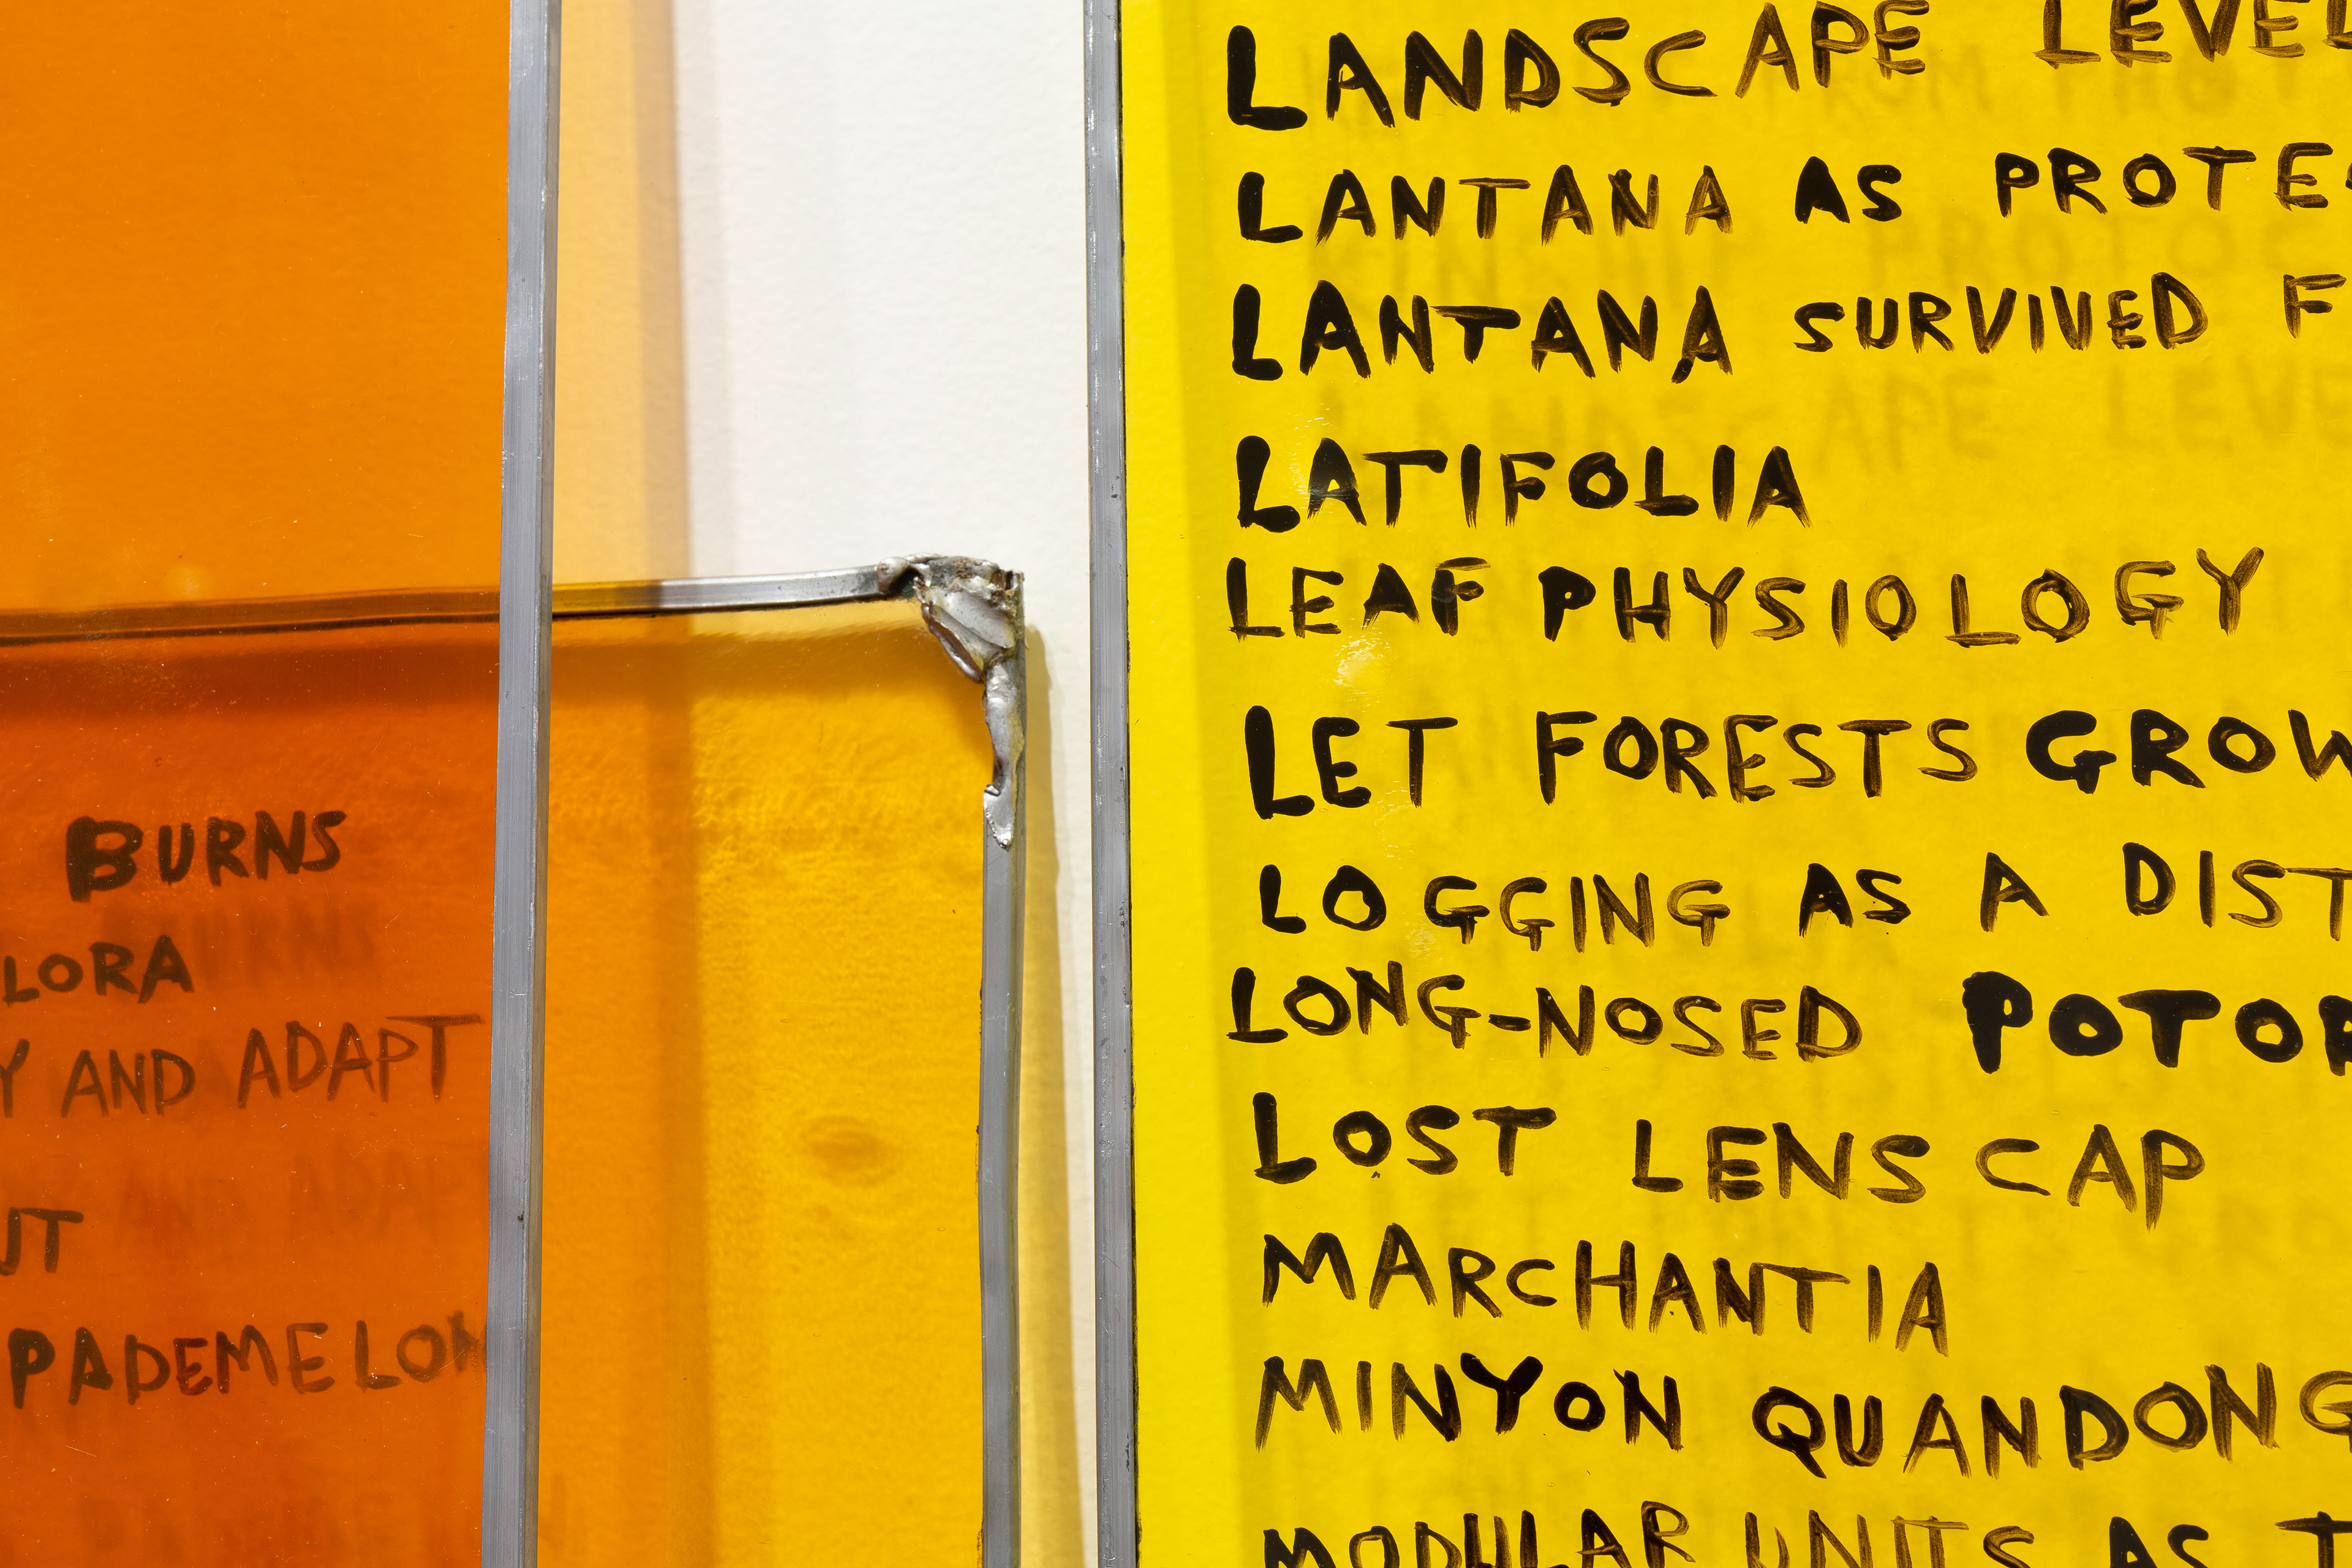 BURNS
LORA
Y AND ADAPT
UT
PADEMELON
LANDSCAPE LEVEL
LANTANA AS PROTE
LANTANA SURVIVED F
LATIFOLIA
LEAF PHYSIOLOGY
LET FORESTS GROW
LOGGING AS A DIST
LONG-NOSED POTOR
LOST LENS CAP
MARCHANTIA
MINYON QUANDONG
MODULAR UNITS AS T